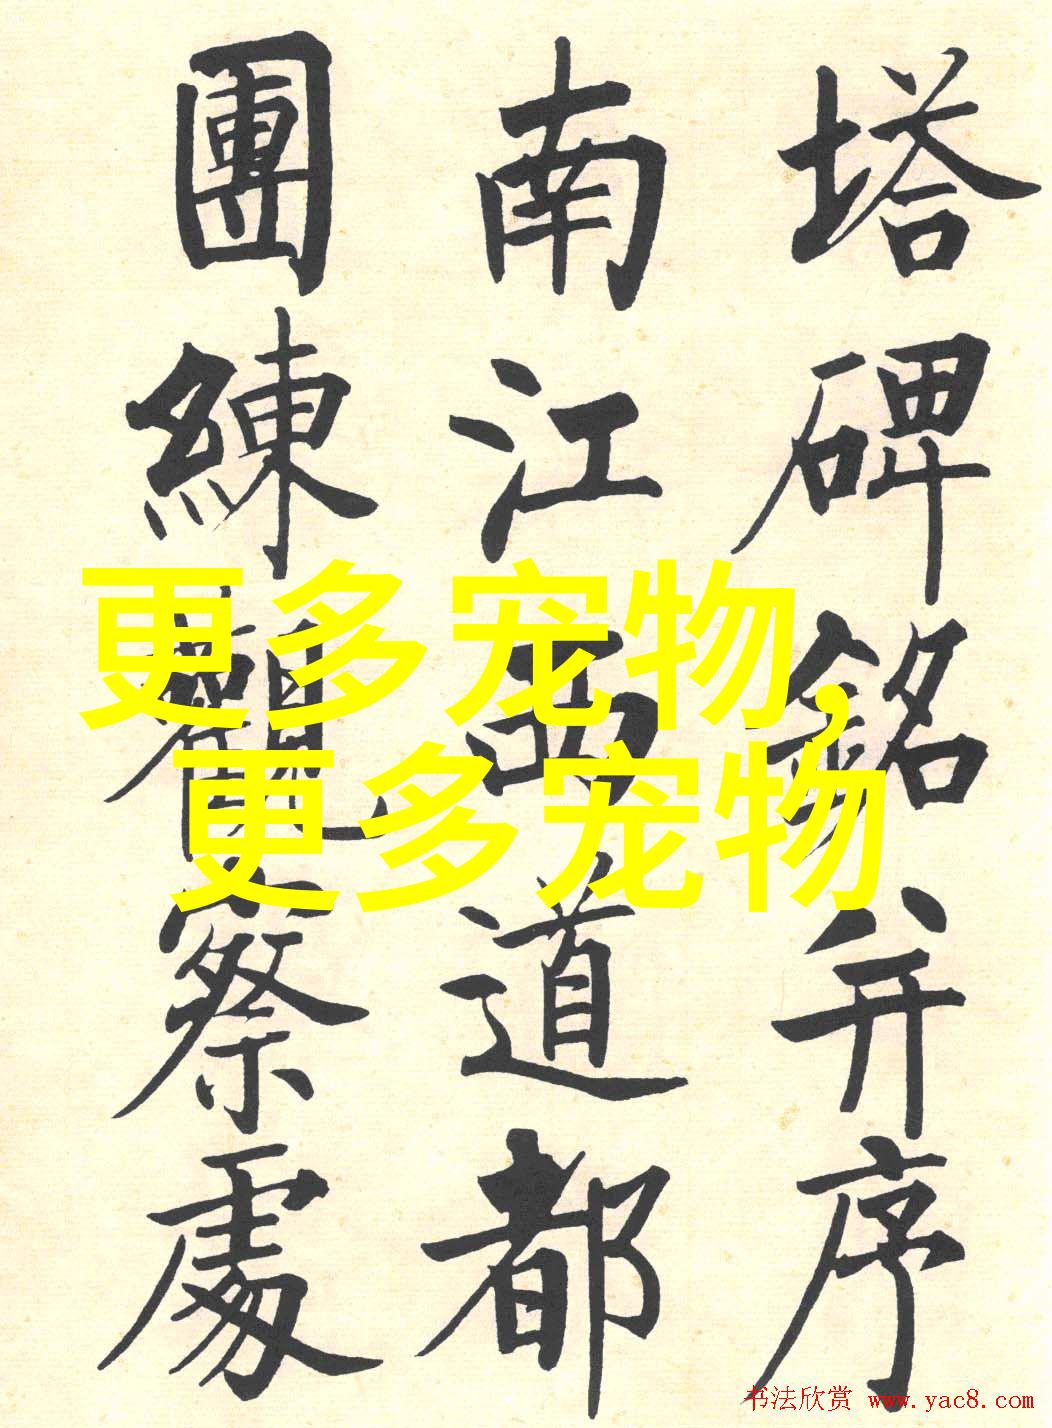 塔碑銘并序
南江西道都
團練觀察處
更多宠物,
更多宠物
书法欣赏 www.yac8.com